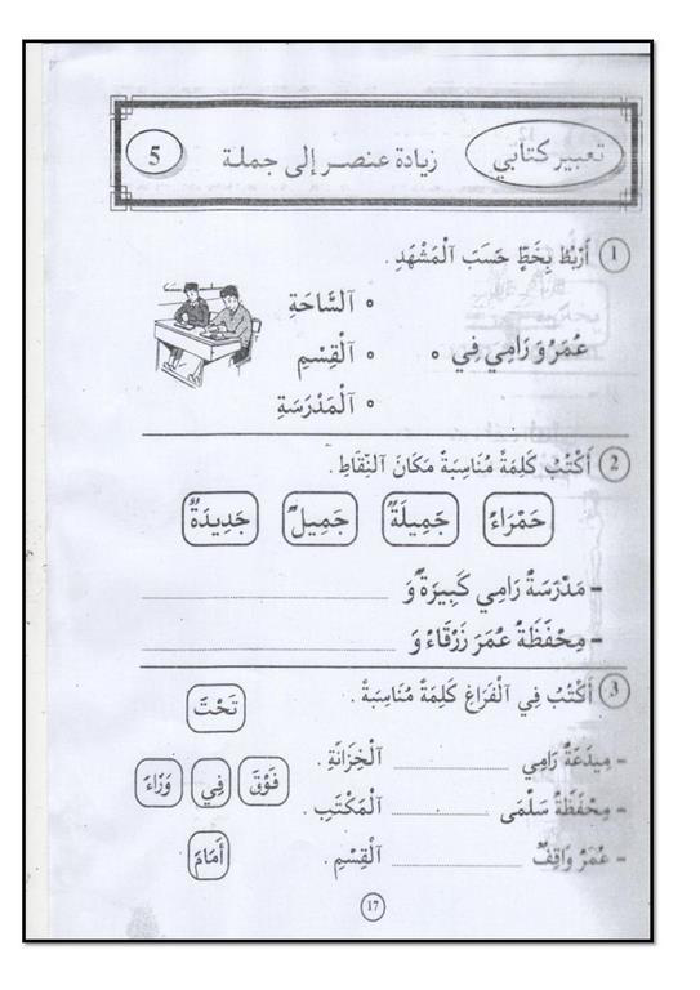 تعبير كتابي زيادة عنصر إلى جملة 5
1 أَرْبُطُ بِخَطٍّ حَسَبَ ٱلْمَشْهَدِ .
ٱلسَّاحَةِ
عُمَرُ وَ رَامِي فِي ٱلْقِسْمِ
ٱلْمَدْرَسَةِ
2 أَكْتُبُ كَلِمَةً مُنَاسِبَةً مَكَانَ ٱلنِّقَاطِ .
حَمْرَاءُ جَمِيلَةٌ جَمِيلٌ جَدِيدَةٌ
- مَدْرَسَةُ رَامِي كَبِيرَةٌ وَ ..........
- مِحْفَظَةُ عُمَرَ زَرْقَاءُ وَ ..........
3 أَكْتُبُ فِي ٱلْفَرَاغِ كَلِمَةً مُنَاسِبَةً .
تَحْتَ
- مِيدَعَةُ رَامِي .......... ٱلْخِزَانَةِ .
فَوْقَ فِي وَرَاءَ
- مِحْفَظَةُ سَلْمَى .......... ٱلْمَكْتَبِ .
- عُمَرُ وَاقِفٌ .......... ٱلْقِسْمِ .
أَمَامَ
17